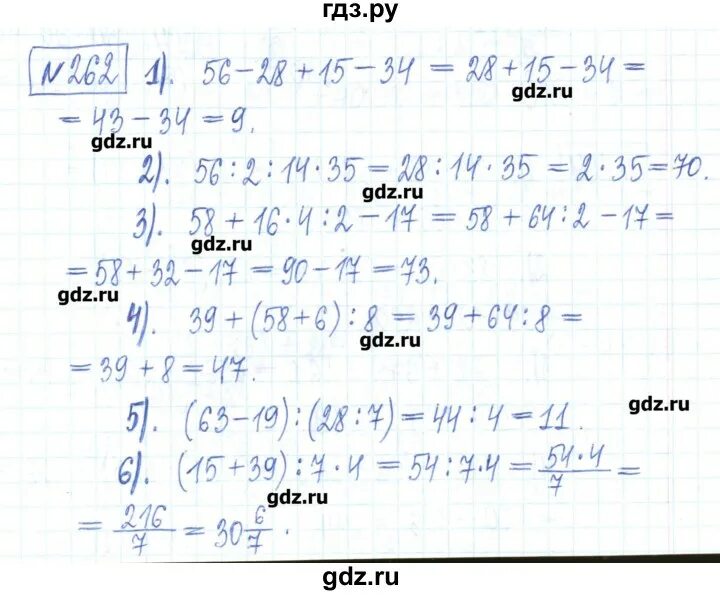 гдз.ру
№262 1). 56-28+15-34 = 28+15-34 =
gdz.ru
= 43-34 = 9.
gdz.ru
2). 56:2:14·35 = 28:14·35 = 2·35 = 70.
gdz.ru
3). 58+16·4:2-17 = 58+64:2-17 =
gdz.ru
= 58+32-17 = 90-17 = 73.
gdz.ru
4). 39+(58+6):8 = 39+64:8 =
gdz.ru
= 39+8 = 47.
gdz.ru
5). (63-19):(28:7) = 44:4 = 11.
6). (15+39):7·4 = 54:7·4 = 54·4/7 =
gdz.ru
= 216/7 = 30 6/7.
gdz.ru